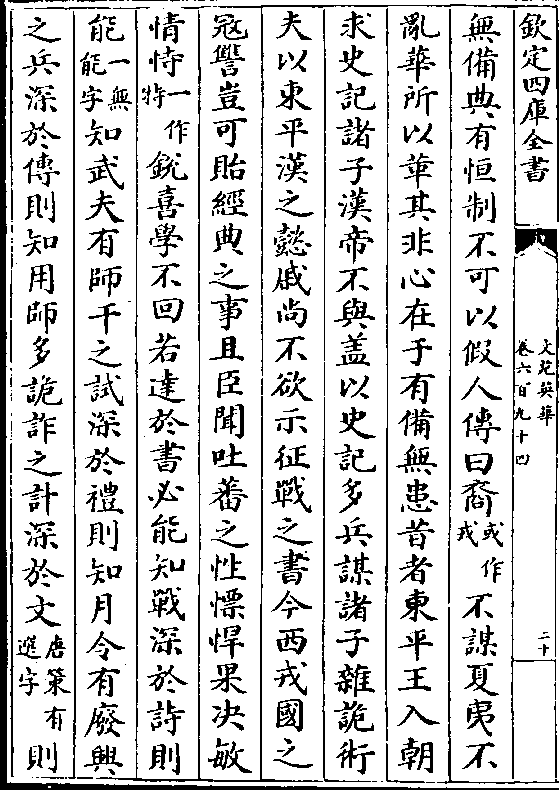 欽定四庫全書
文苑英華
卷六百九十四
二十
無備典有恒制不可以假人傳曰裔或作戎不謀夏夷不
亂華所以華其非心在于有備無患昔者東平王入朝
求史記諸子漢帝不與蓋以史記多兵謀諸子雜詭術
夫以東平漢之懿戚尚不欲示征戰之書今西戎國之
寇讐豈可貽經典之事且臣聞吐蕃之性慓悍果決敏
情恃一作特銳喜學不回若達於書必能知戰深於詩則
能一無能字知武夫有師干之試深於禮則知月令有廢興
之兵深於傳則知用師多詭詐之計深於文唐策有選字則